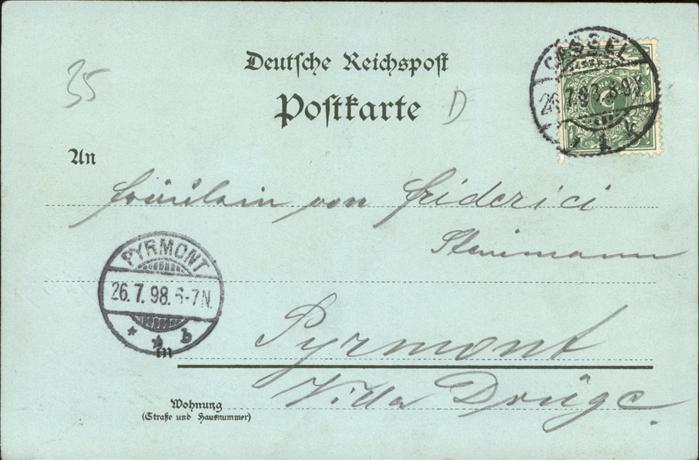 CASSEL
26.7.98. 8-9V.
Deutsche Reichspost
Postkarte
35
D
An
Fräulein von Friderici
Steinmann
PYRMONT
26.7.98. 6-7N.
* * b
in
Pyrmont
Wohnung
(Straße und Hausnummer)
Villa Drüge.